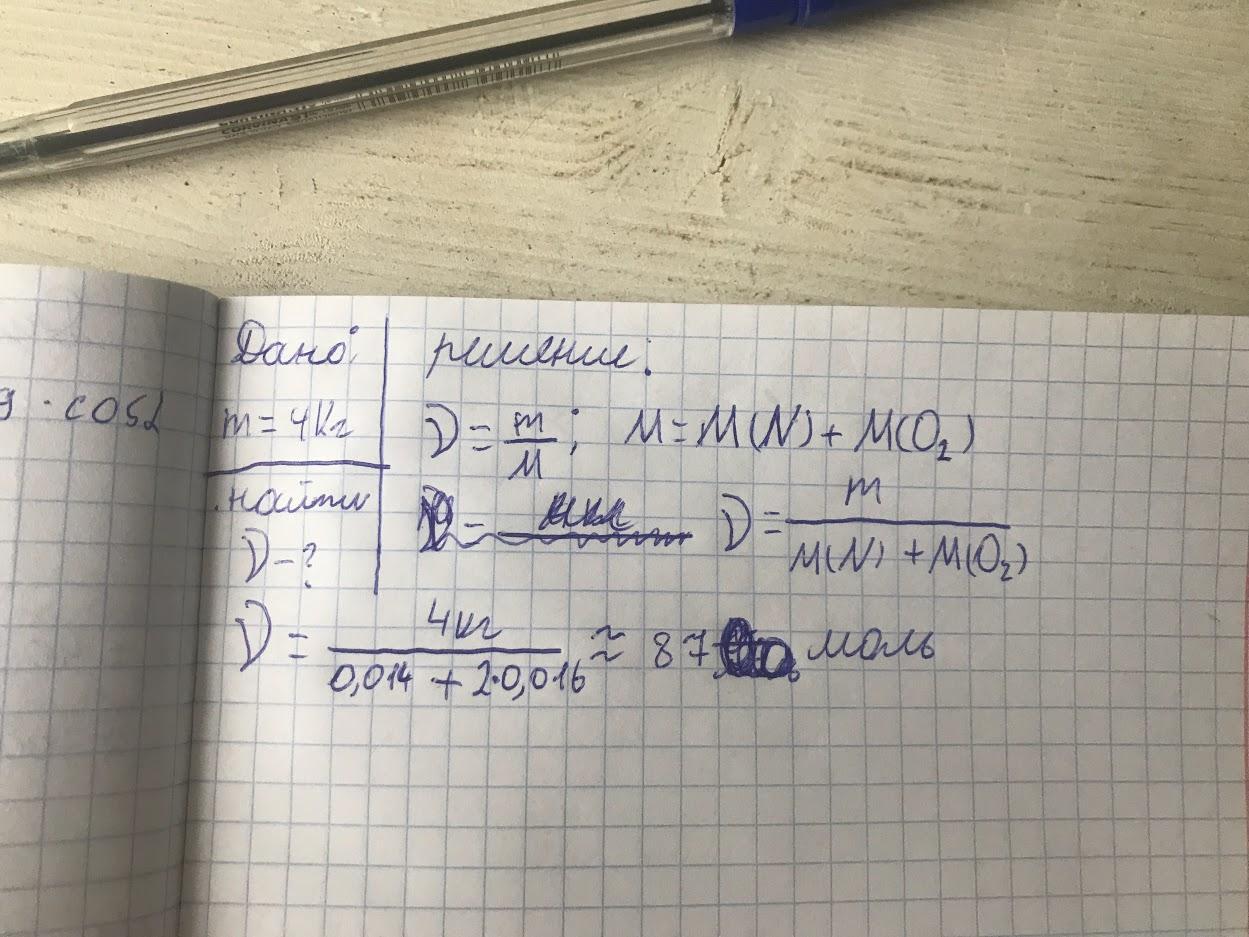 CORVINA 51
g · cosα
Дано:
m = 4кг
найти
ν - ?
решение:
ν = m/M ; M = M(N) + M(O₂)
ν = m/(M(N) + M(O₂))
ν = 4кг/(0,014 + 2·0,016) ≈ 87 моль